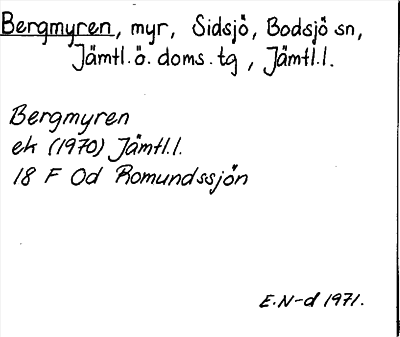 Bergmyren, myr, Sidsjö, Bodsjö sn,
Jämtl.ö. doms. tg, Jämtl.l.
Bergmyren
ek (1970) Jämtl.l.
18 F Od Romundssjön
E.N-d 1971.